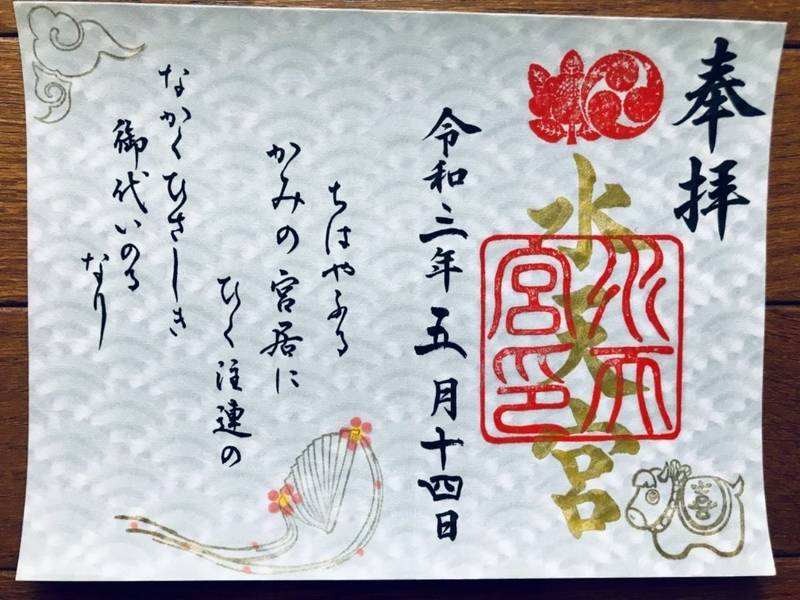 奉拝
水天宮
水天宮印
令和三年五月十四日
ちはやふる
かみの宮居に
ひく注連の
なかくひさしき
御代いのる
なり
喜